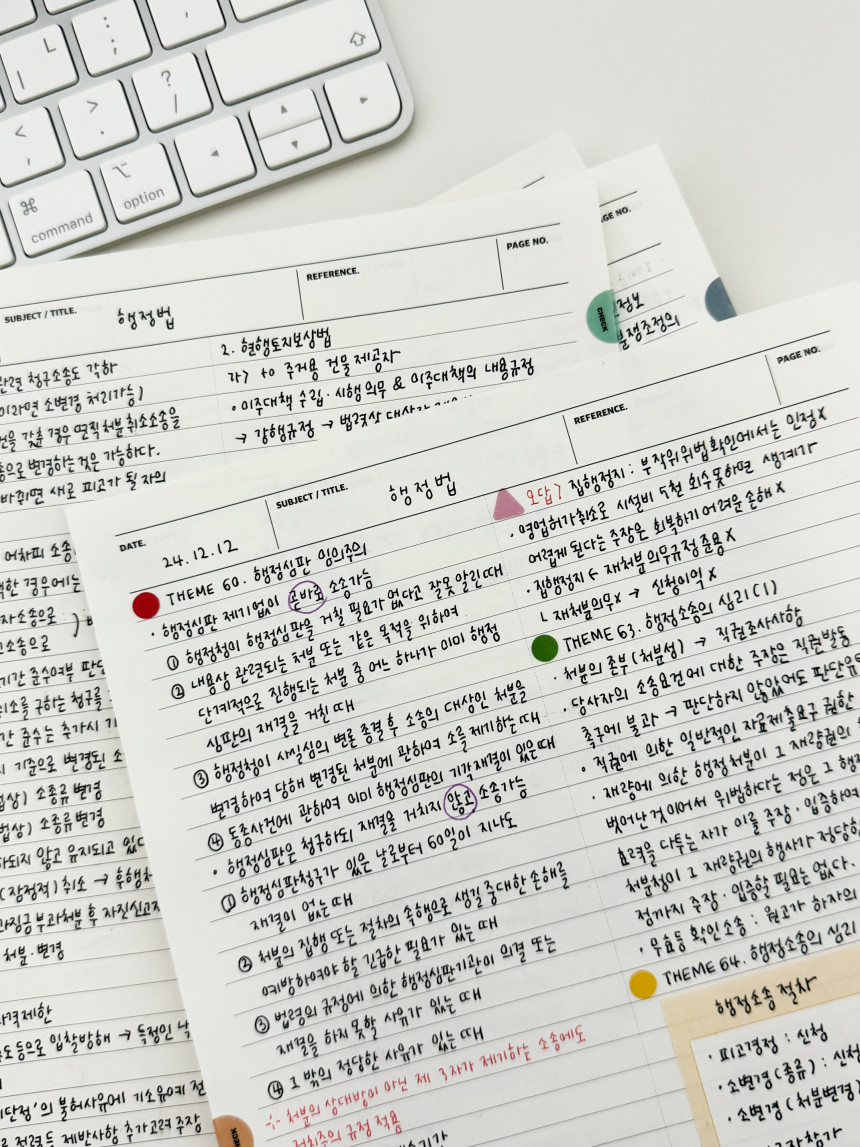 L
:
;
?
/
>
.
<
,
option
command
PAGE NO.
REFERENCE.
SUBJECT / TITLE.
행정법
GE NO.
CHECK
정보
분쟁조정의
관련 청구소송도 각하
이라면 소변경 처리가능)
건을 갖출 경우 면직처분취소소송을
송으로 변경하는 것은 가능하다.
바뀌면 새로 피고가 될 자의
2. 현행토지보상법
가> to 주거용 건물 제공자
· 이주대책 수립·시행의무 & 이주대책의 내용규정
→ 강행규정 → 법령상 대상자
어차피 소송
한 경우에는
자소송으로
소송으로
기간 준수여부 판단
소를 구하는 청구를
간 준수는 추가시 기
기준으로 변경된 소
법상) 소종류 변경
법상) 소종류변경
되지 않고 유지되고 있다
(잠정적) 취소 → 후행처
과징금 부과처분 후 자진신고
처분·변경
격제한
도등으로 입찰방해 → 특정인 낙
단정'의 불허사유에 기소유예 전
전력등 제반사항 추가고려 주장
PAGE NO.
REFERENCE.
SUBJECT / TITLE.
행정법
DATE.
24.12.12
THEME 60. 행정심판 임의주의
· 행정심판 제기없이 곧바로 소송가능
① 행정청이 행정심판을 거칠 필요가 없다고 잘못 알린때
② 내용상 관련되는 처분 또는 같은 목적을 위하여
단계적으로 진행되는 처분 중 어느 하나가 이미 행정
심판의 재결을 거친 때
③ 행정청이 사실심의 변론 종결 후 소송의 대상인 처분을
변경하여 당해 변경된 처분에 관하여 소를 제기하는 때
④ 동종사건에 관하여 이미 행정심판의 기각재결이 있은때
· 행정심판은 청구하되 재결을 거치지 않고 소송가능
① 행정심판청구가 있은 날로부터 60일이 지나도
재결이 없는 때
② 처분의 집행 또는 절차의 속행으로 생길 중대한 손해를
예방하여야 할 긴급한 필요가 있는 때
③ 법령의 규정에 의한 행정심판기관이 의결 또는
재결을 하지 못할 사유가 있는 때
④ 그 밖의 정당한 사유가 있는 때
처분의 상대방이 아닌 제 3자가 제기하는 소송에도
전치주의 규정 적용
CHECK
오답> 집행정지: 부작위위법확인에서는 인정 X
· 영업허가취소로 시설비 5천 회수못하면 생계가
어렵게 된다는 주장은 회복하기 어려운 손해 X
· 집행정지 ← 재처분의무규정 준용 X
ㄴ 재처분의무X → 신청이익 X
THEME 63. 행정소송의 심리(1)
· 처분의 존부(처분성) → 직권조사사항
· 당사자의 소송요건에 대한 주장은 직권발동
촉구에 불과 → 판단하지 않았어도 판단유
· 직권에 의한 일반적인 자료제출요구 권한
· 재량에 의한 행정처분이 그 재량권의
벗어난 것이어서 위법하다는 점은 그 행
효력을 다투는 자가 이를 주장·입증하여
처분청이 그 재량권의 행사가 정당한
점까지 주장·입증할 필요는 없다.
· 무효등 확인소송: 원고가 하자의
THEME 64. 행정소송의 심리
행정소송 절차
· 피고경정: 신청
· 소변경(종류): 신청
· 소변경(처분변경)